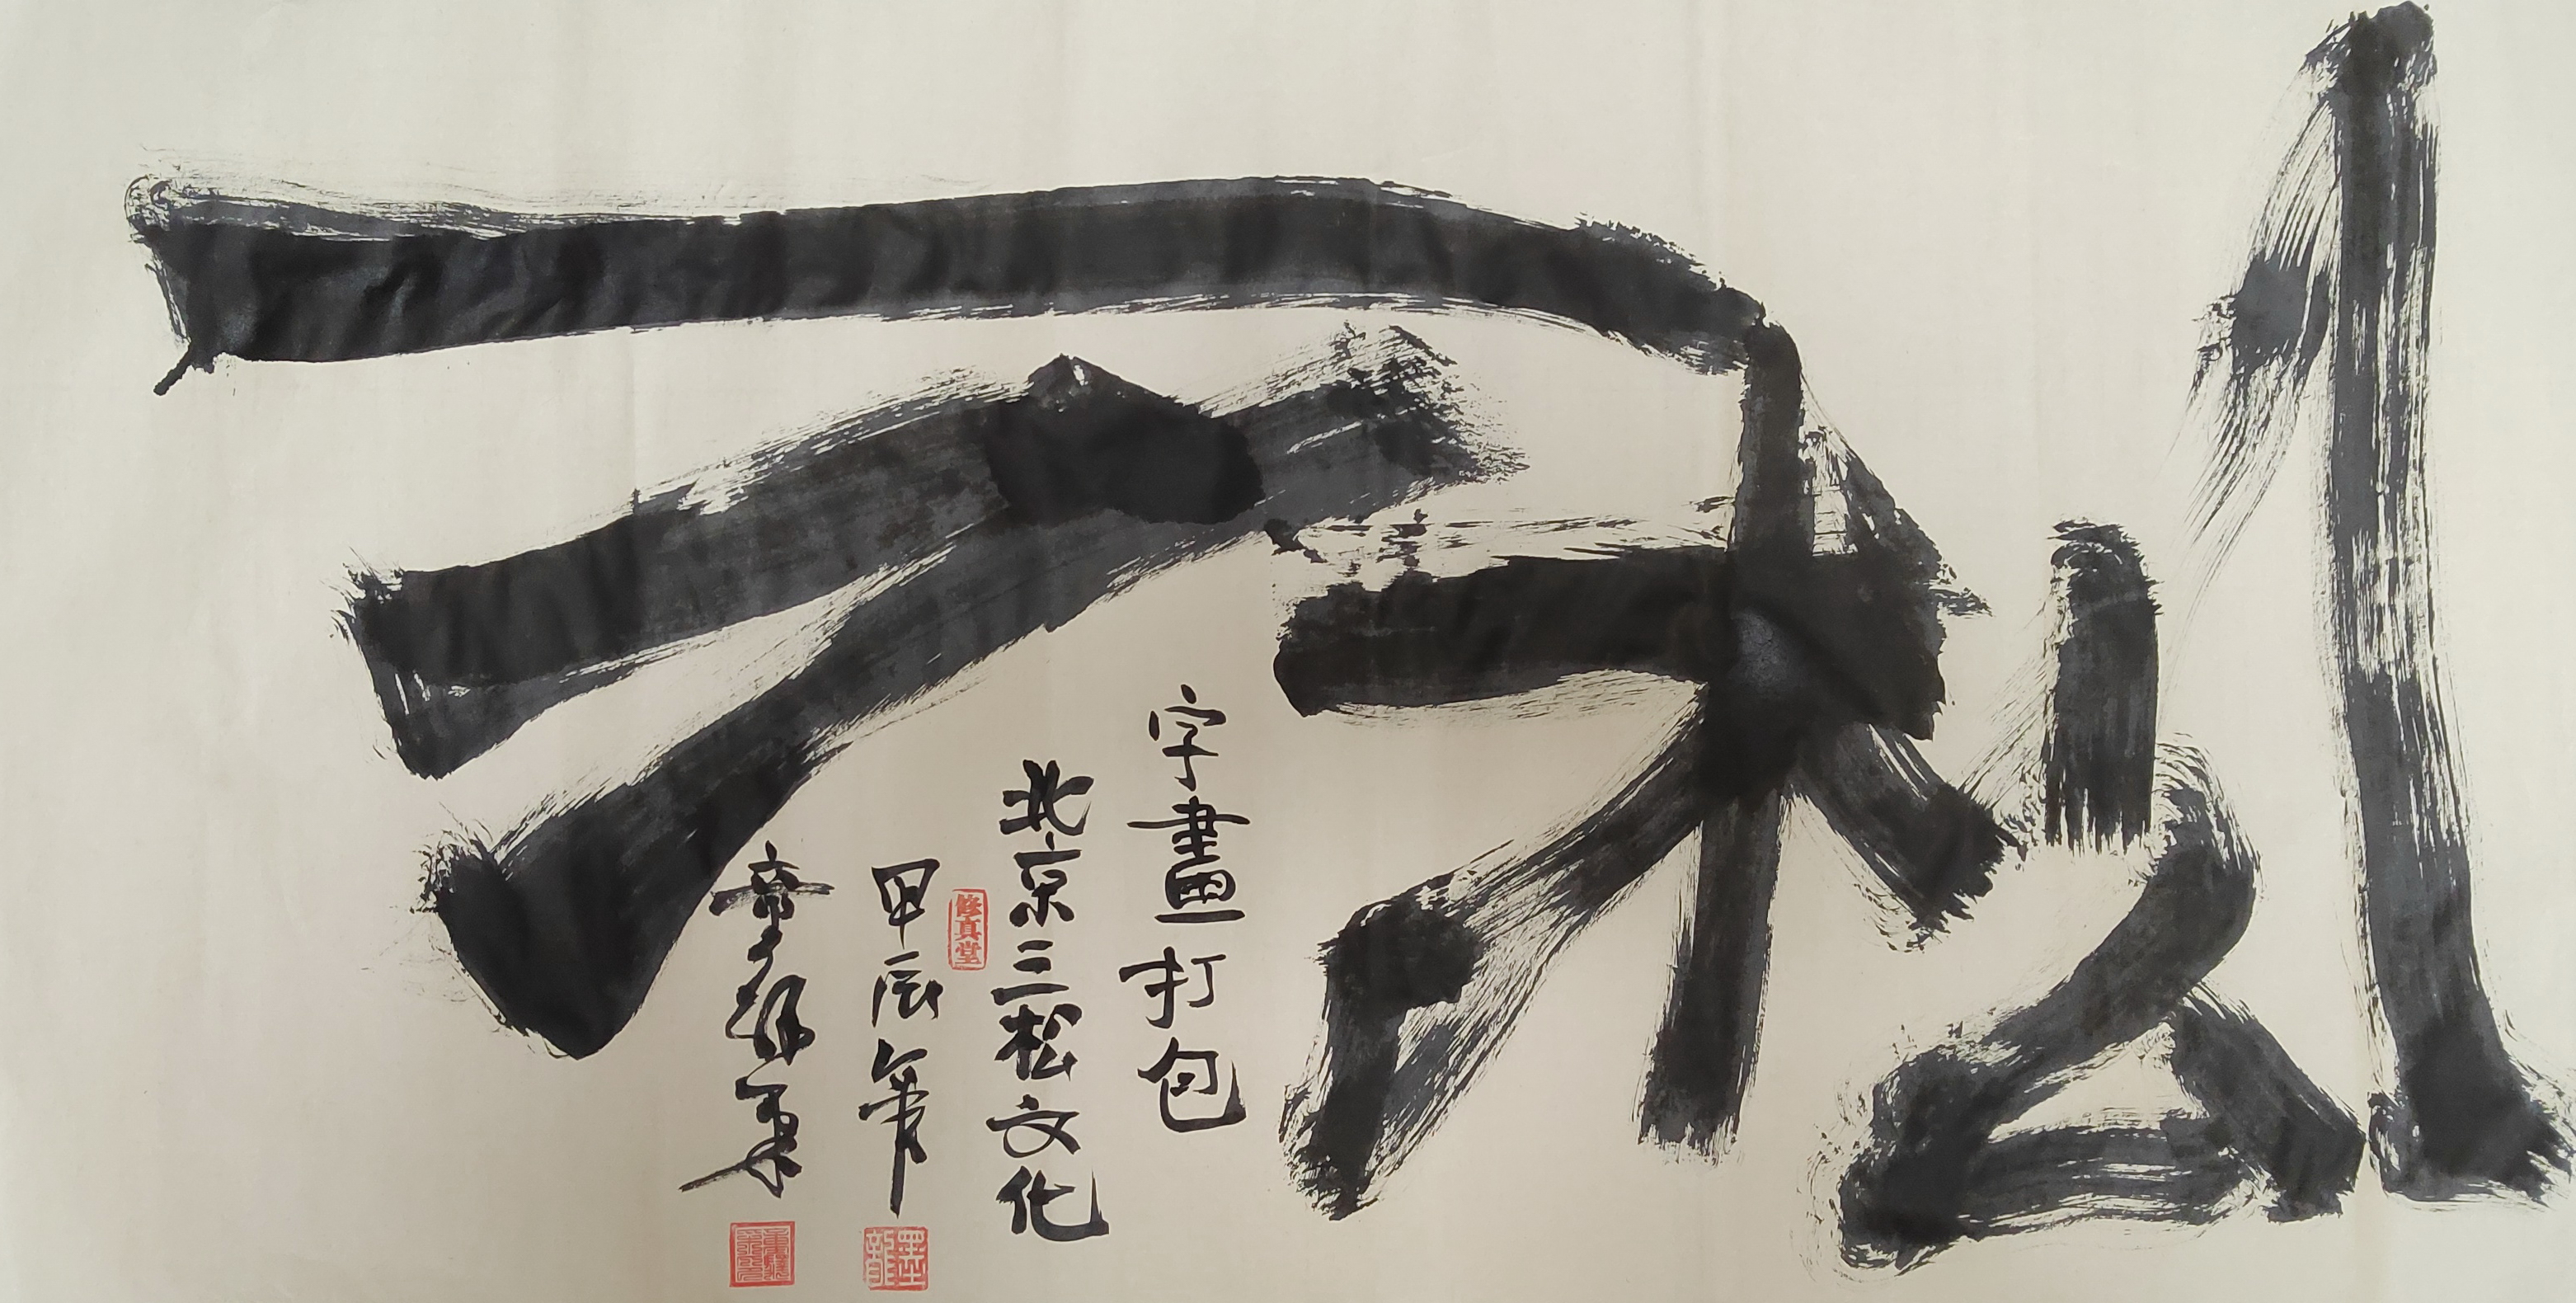 三松
字畫打包
北京三松文化
修真堂
甲辰年
墨龍